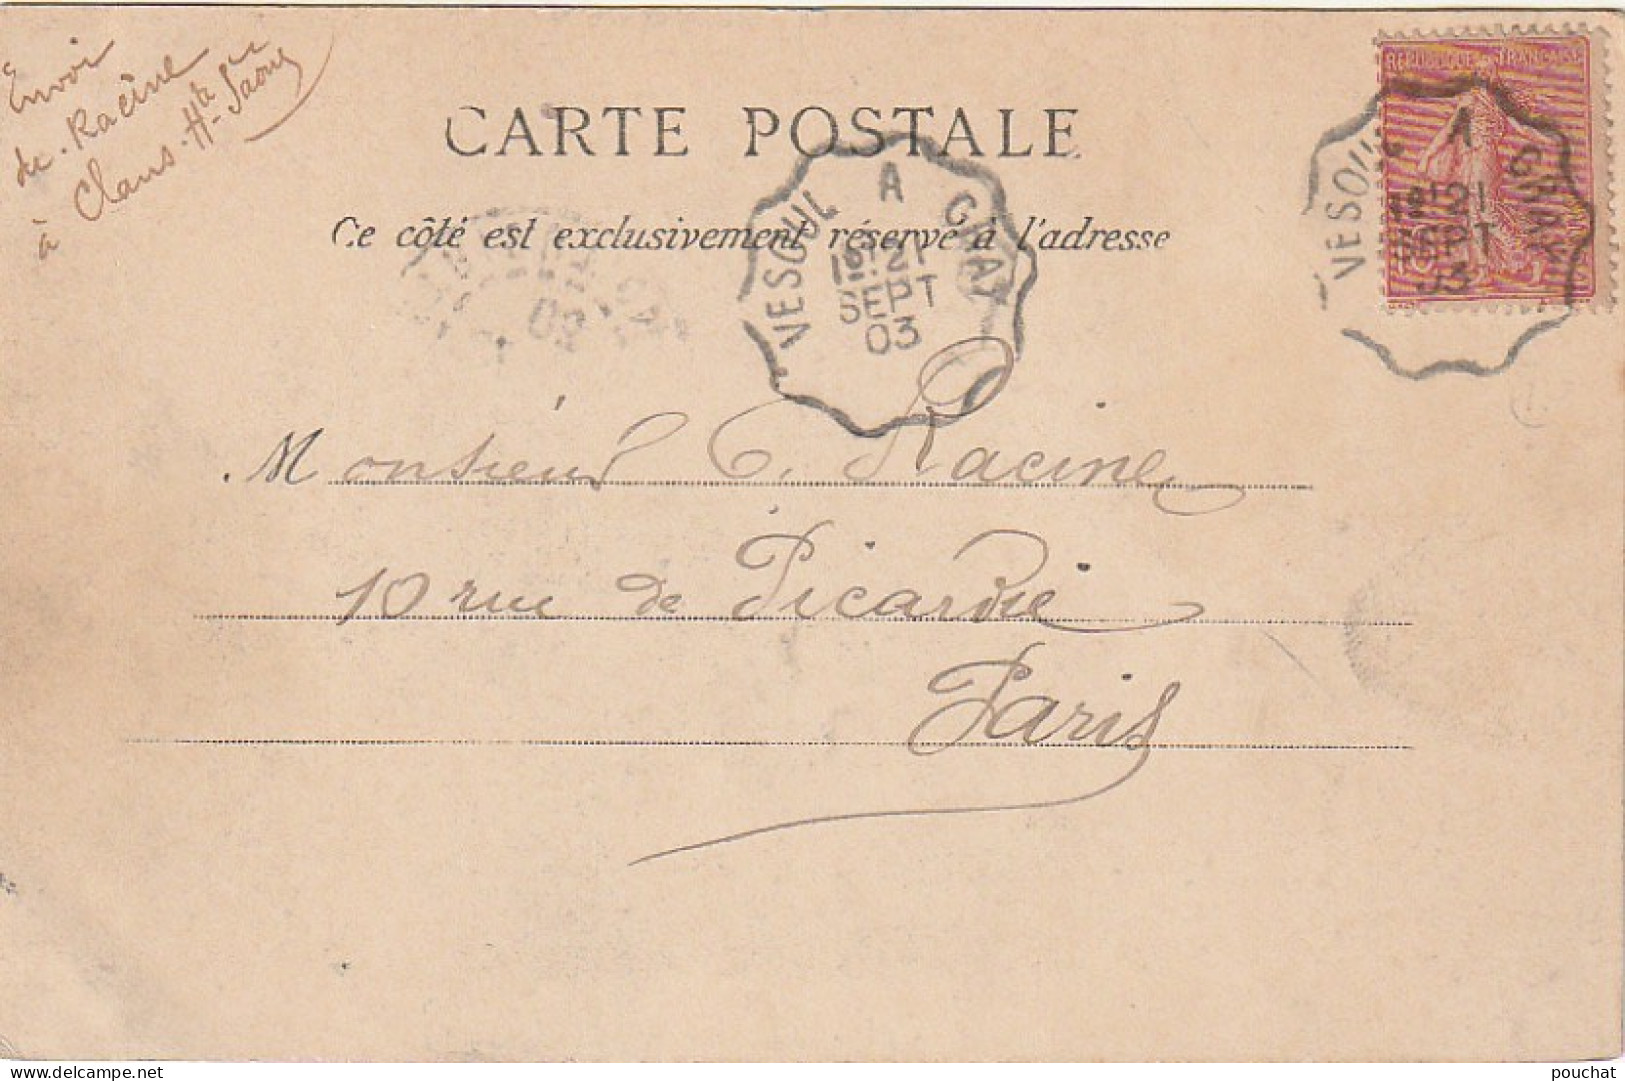 Envoi
de Racine
à Clans. Hte Saône
CARTE POSTALE
Ce côté est exclusivement réservé à l'adresse
RÉPUBLIQUE FRANÇAISE
VESOUL A GRAY
1º 21
SEPT
03
VESOUL A GRAY
1º 21
SEPT
03
03
Monsieur C. Racine
10 rue de Picardie
Paris
delcampe.net
pouchat